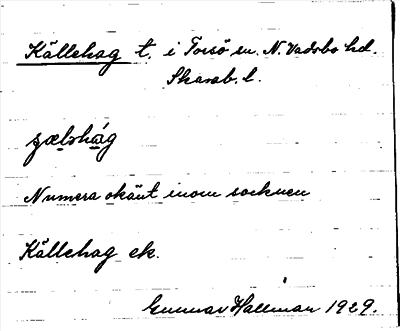 Källehag t. i Torsö sn. N. Vadsbo hd.
Skarab. l.
Numera okänt inom socknen
Källehag ek.
Gunnar Hallman 1929.